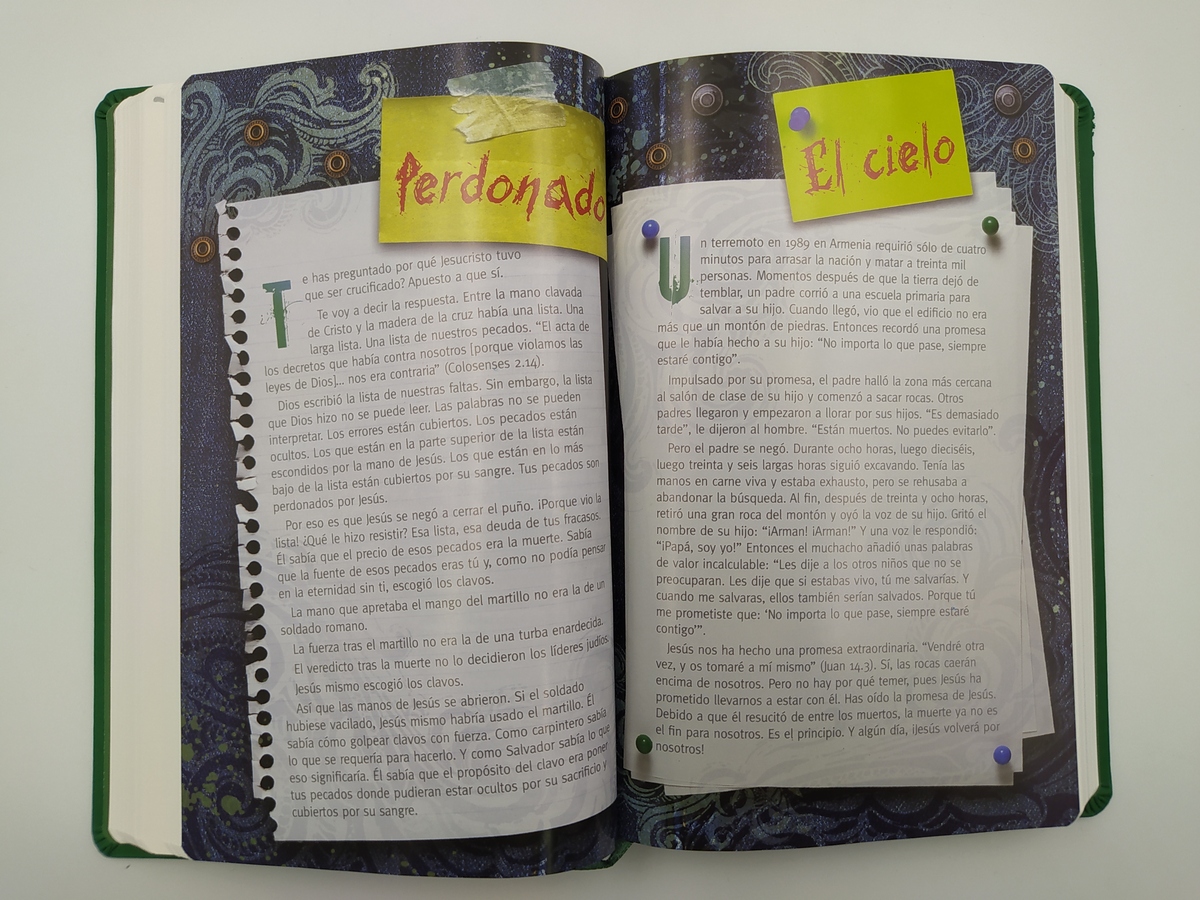 Perdonado
¿Te has preguntado por qué Jesucristo tuvo
que ser crucificado? Apuesto a que sí.
Te voy a decir la respuesta. Entre la mano clavada
de Cristo y la madera de la cruz había una lista. Una
larga lista. Una lista de nuestros pecados. “El acta de
los decretos que había contra nosotros [porque violamos las
leyes de Dios]... nos era contraria” (Colosenses 2.14).
Dios escribió la lista de nuestras faltas. Sin embargo, la lista
que Dios hizo no se puede leer. Las palabras no se pueden
interpretar. Los errores están cubiertos. Los pecados están
ocultos. Los que están en la parte superior de la lista están
escondidos por la mano de Jesús. Los que están en lo más
bajo de la lista están cubiertos por su sangre. Tus pecados son
perdonados por Jesús.
Por eso es que Jesús se negó a cerrar el puño. ¡Porque vio la
lista! ¿Qué le hizo resistir? Esa lista, esa deuda de tus fracasos.
Él sabía que el precio de esos pecados era la muerte. Sabía
que la fuente de esos pecados eras tú y, como no podía pensar
en la eternidad sin ti, escogió los clavos.
La mano que apretaba el mango del martillo no era la de un
soldado romano.
La fuerza tras el martillo no era la de una turba enardecida.
El veredicto tras la muerte no lo decidieron los líderes judíos.
Jesús mismo escogió los clavos.
Así que las manos de Jesús se abrieron. Si el soldado
hubiese vacilado, Jesús mismo habría usado el martillo. Él
sabía cómo golpear clavos con fuerza. Como carpintero sabía
lo que se requería para hacerlo. Y como Salvador sabía lo que
eso significaría. Él sabía que el propósito del clavo era poner
tus pecados donde pudieran estar ocultos por su sacrificio y
cubiertos por su sangre.
El cielo
Un terremoto en 1989 en Armenia requirió sólo de cuatro
minutos para arrasar la nación y matar a treinta mil
personas. Momentos después de que la tierra dejó de
temblar, un padre corrió a una escuela primaria para
salvar a su hijo. Cuando llegó, vio que el edificio no era
más que un montón de piedras. Entonces recordó una promesa
que le había hecho a su hijo: “No importa lo que pase, siempre
estaré contigo”.
Impulsado por su promesa, el padre halló la zona más cercana
al salón de clase de su hijo y comenzó a sacar rocas. Otros
padres llegaron y empezaron a llorar por sus hijos. “Es demasiado
tarde”, le dijeron al hombre. “Están muertos. No puedes evitarlo”.
Pero el padre se negó. Durante ocho horas, luego dieciséis,
luego treinta y seis largas horas siguió excavando. Tenía las
manos en carne viva y estaba exhausto, pero se rehusaba a
abandonar la búsqueda. Al fin, después de treinta y ocho horas,
retiró una gran roca del montón y oyó la voz de su hijo. Gritó el
nombre de su hijo: “¡Arman! ¡Arman!” Y una voz le respondió:
“¡Papá, soy yo!” Entonces el muchacho añadió unas palabras
de valor incalculable: “Les dije a los otros niños que no se
preocuparan. Les dije que si estabas vivo, tú me salvarías. Y
cuando me salvaras, ellos también serían salvados. Porque tú
me prometiste que: ‘No importa lo que pase, siempre estaré
contigo’”.
Jesús nos ha hecho una promesa extraordinaria. “Vendré otra
vez, y os tomaré a mí mismo” (Juan 14.3). Sí, las rocas caerán
encima de nosotros. Pero no hay por qué temer, pues Jesús ha
prometido llevarnos a estar con él. Has oído la promesa de Jesús.
Debido a que él resucitó de entre los muertos, la muerte ya no es
el fin para nosotros. Es el principio. Y algún día, ¡Jesús volverá por
nosotros!